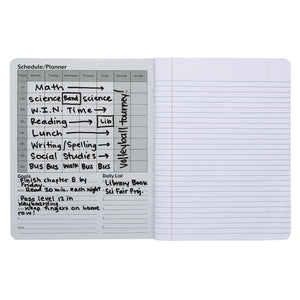 Schedule/Planner
Math
science Band science
W.I.N. Time
Reading Lib
Lunch
Writing/Spelling
Social Studies
Bus Bus walk Bus Bus
volleyball tourney!
Goals
- Finish chapter 8 by
Friday
- Read 20 min. each night
- Pass level 12 in
Keyboarding
- Keep fingers on home
row!
Daily List
Library Book
Sci Fair Proj.